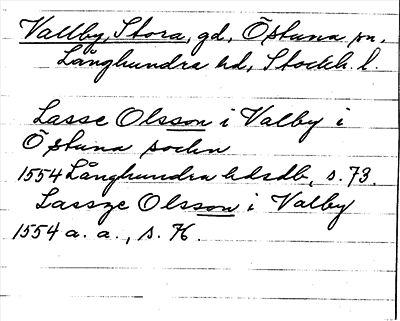 Vallby, Stora, gd, Östuna sn.
Långhundra hd, Stockh. l.
Lasse Olsson i Valby i
Östuna sochn
1554 Långhundra hdsdb, s. 73.
Lassze Olsson i Valby
1554 a. a., s. 76.